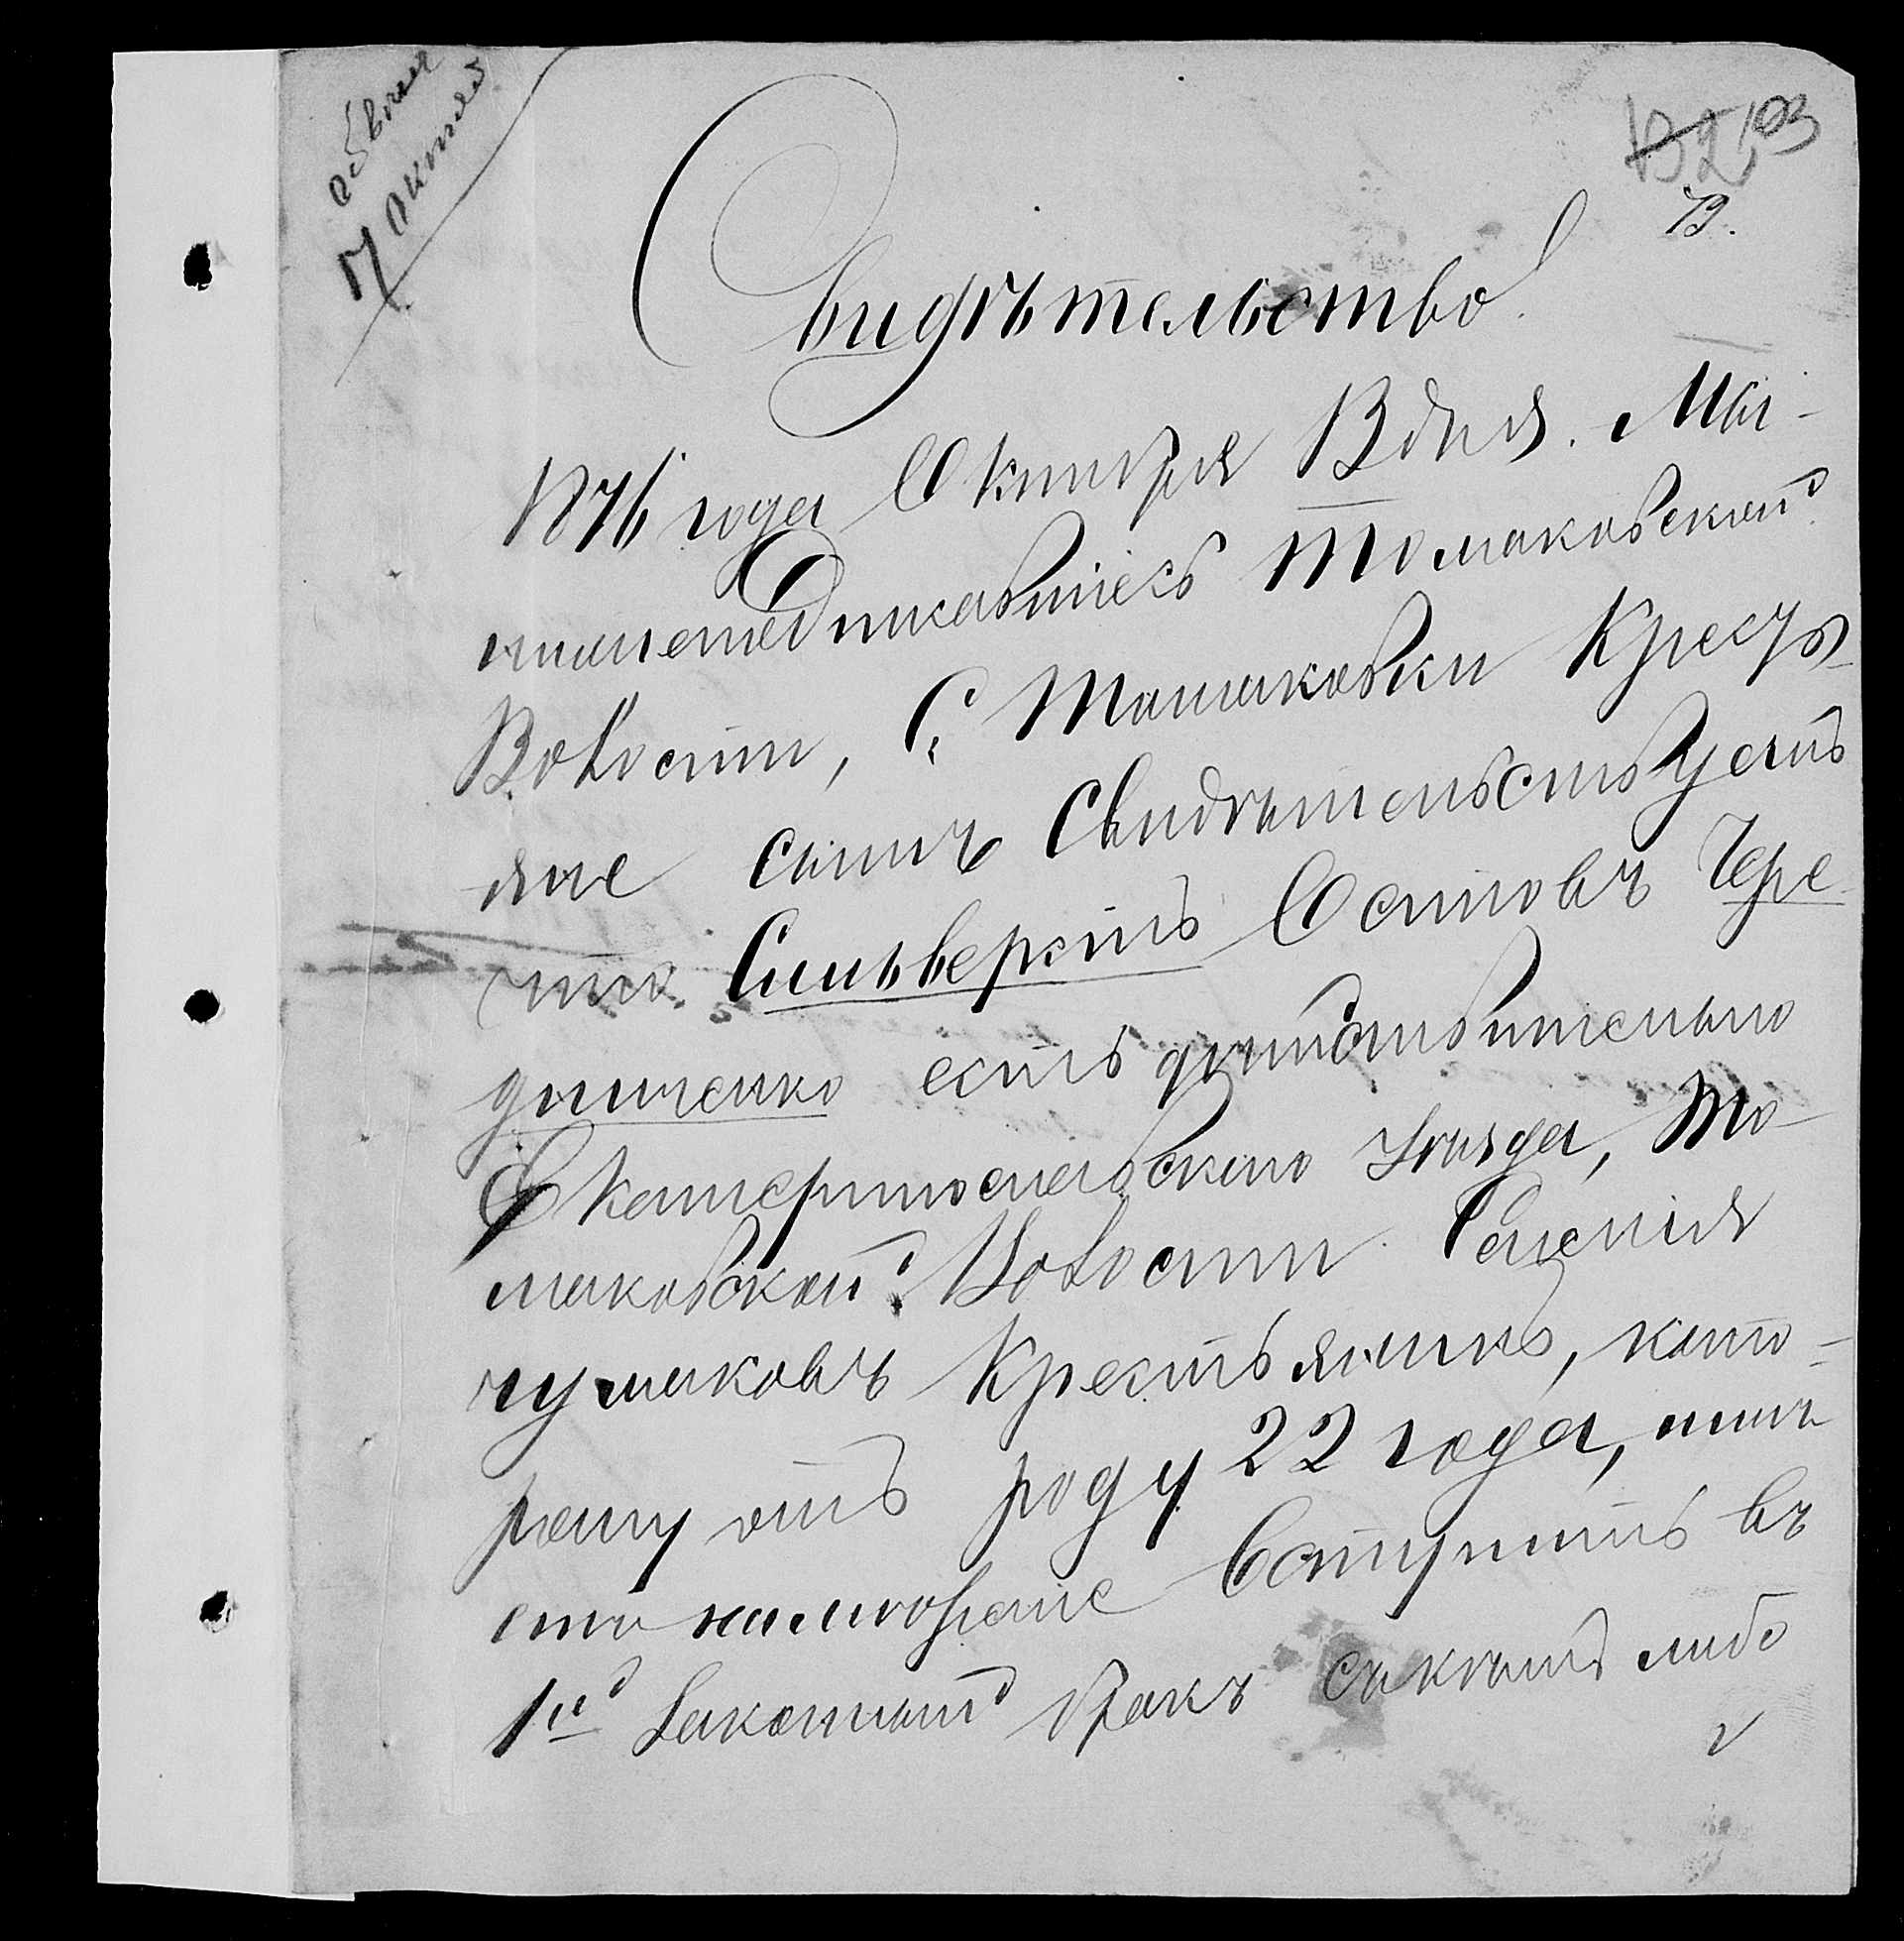 17 октяб
103
79.
Свидѣтельство.
1876 года Октября 13 дня. Мы
нижеподписавшіесь Томаковской
Волости, С. Томаковки Кресть-
яне симъ Свидѣтельствуемъ
что Сильверстъ Осиповъ Чере
дниченко есть дѣйствительно
Екатеринославскаго Уѣзда, То-
маковской Волости Селенія
Чумаковъ Крестьянинъ, кото-
рому отъ роду 22 года, имѣ
етъ намѣреніе Вступить въ
1й Законный бракъ съ кѣмъ либо